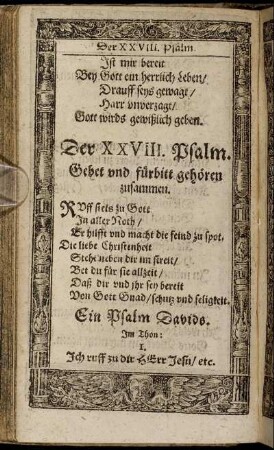 Der XXVIII. Psalm.
Ist mir bereit
Bey Gott ein herrlich Leben/
Drauff seys gewagt/
Harr vnverzagt/
Gott wirds gewißlich geben.
Der XXVIII. Psalm.
Gebet vnd fürbitt gehören
zusammen.
RVff stets zu Gott
In aller Noth/
Er hilfft vnd macht die feind zu spot,
Die liebe Christenheit
Steht neben dir im streit/
Bet du für sie allzeit/
Daß dir vnd ihr sey bereit
Von Gott Gnad/ schutz vnd seligkeit.
Ein Psalm Davids.
Im Thon:
I.
Ich ruff zu dir HErr Jesu/ etc.